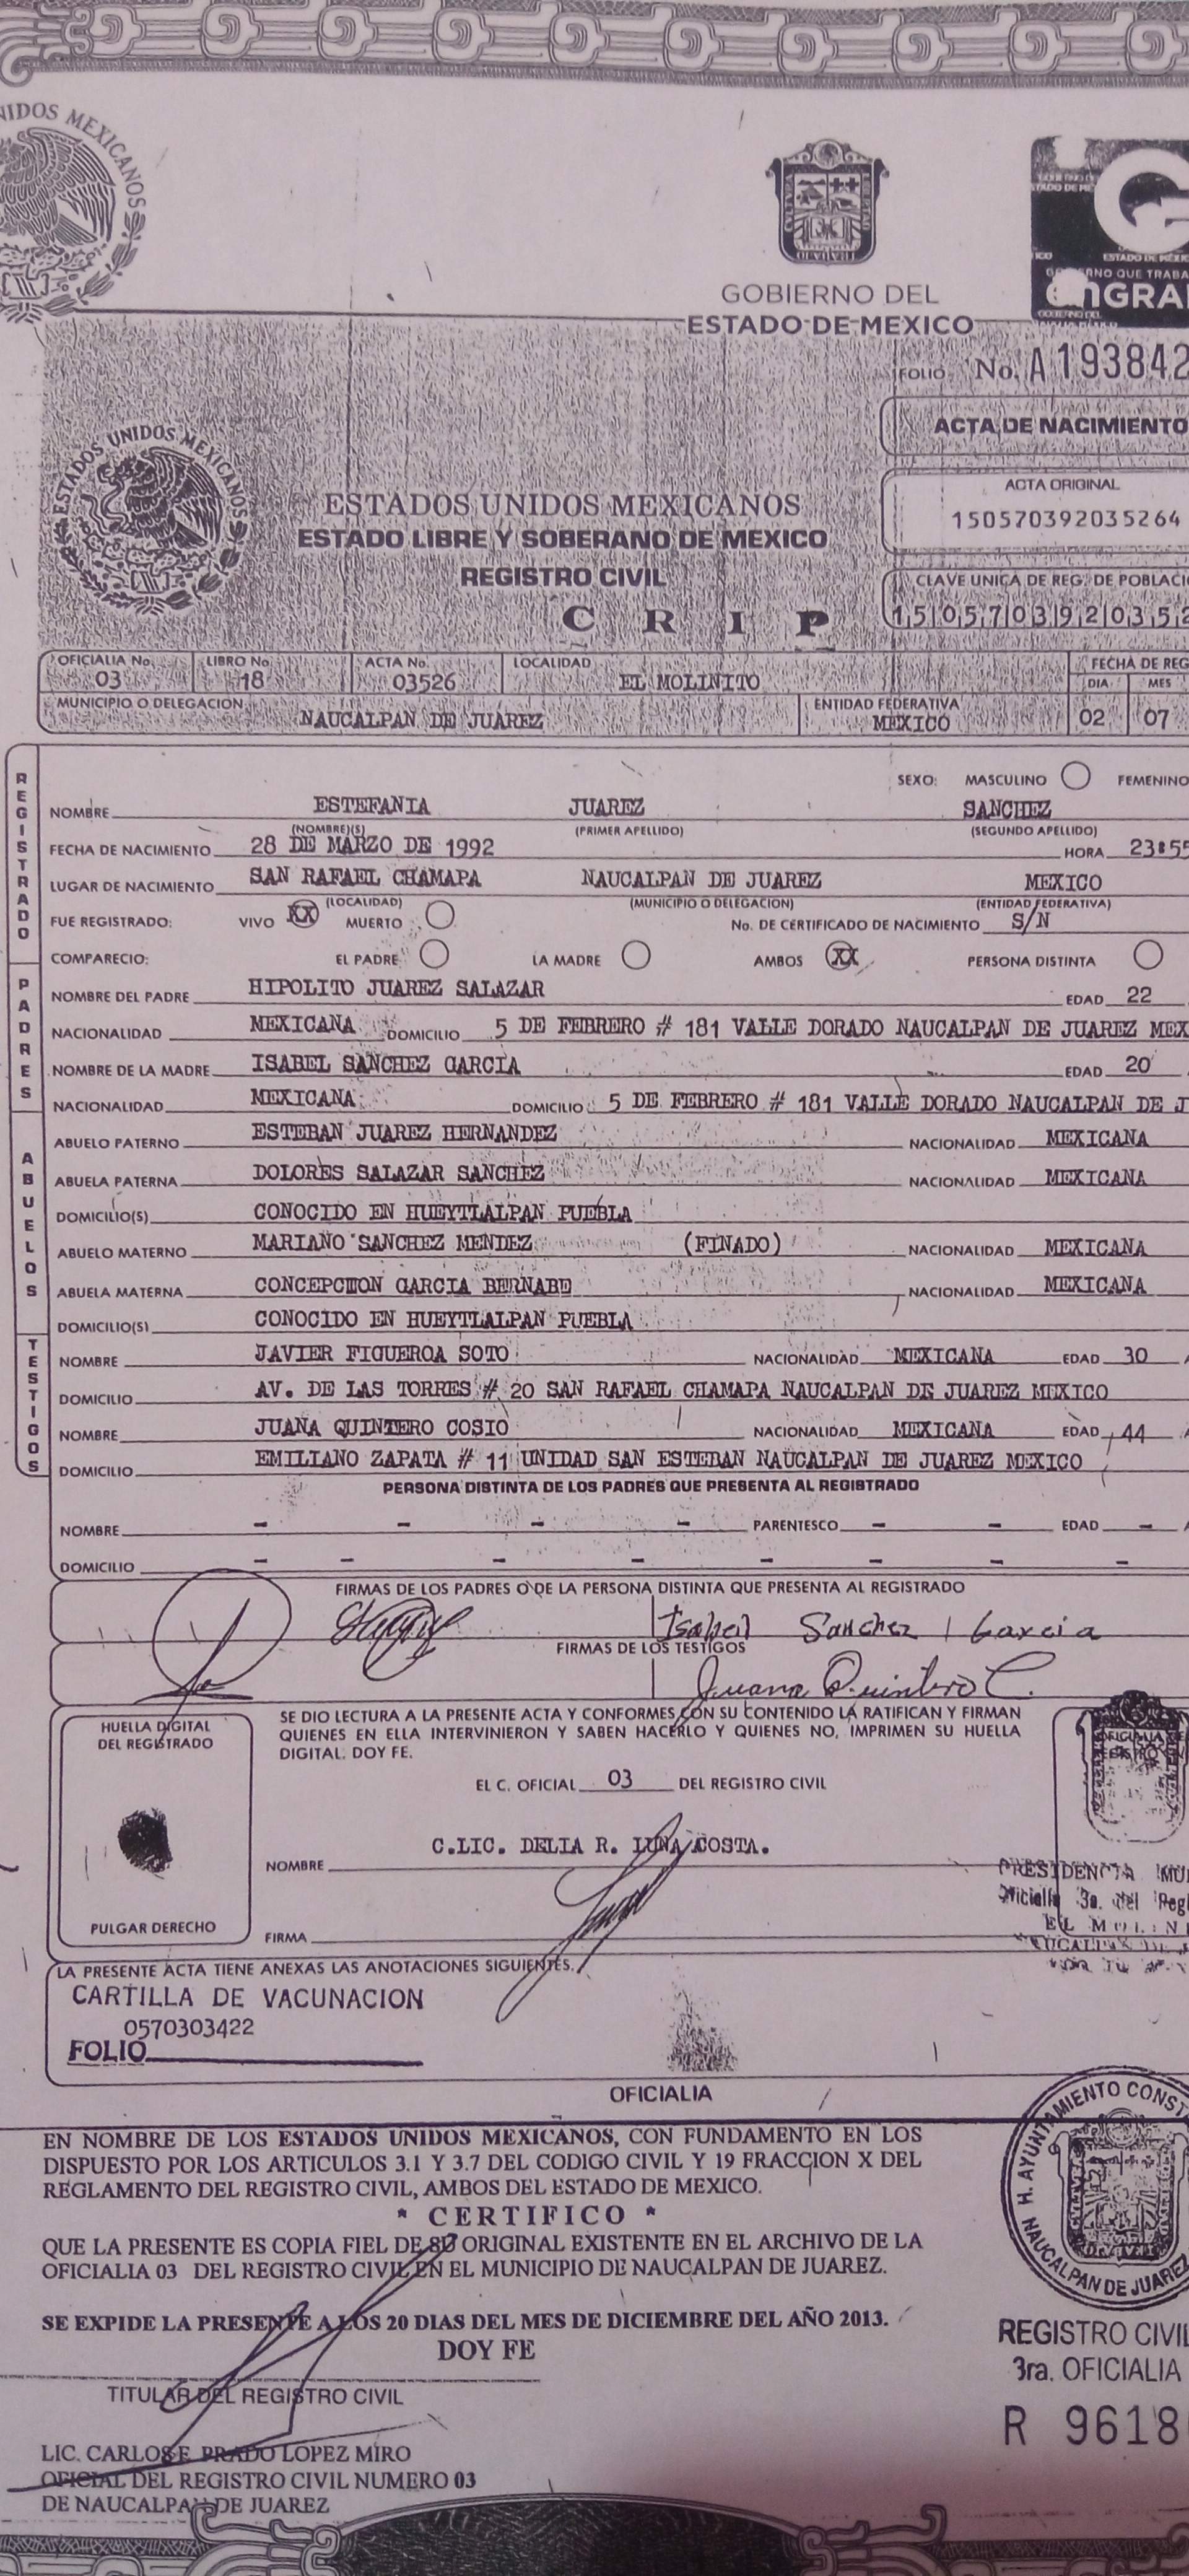 UNIDOS MEXICANOS
GOBIERNO DEL
ESTADO DE MEXICO
ESTADO DE MEXICO
GOBIERNO QUE TRABA
enGRAN
FOLIO No. A193842
ACTA DE NACIMIENTO
ACTA ORIGINAL
150570392035264
ESTADOS UNIDOS MEXICANOS
ESTADOS UNIDOS MEXICANOS
ESTADO LIBRE Y SOBERANO DE MEXICO
REGISTRO CIVIL
CLAVE UNICA DE REG. DE POBLACI
C R I P 1505703920352
OFICIALIA No. LIBRO No ACTA No. LOCALIDAD FECHA DE REG
03 18 03526 EL MOLINITO DIA MES
MUNICIPIO O DELEGACION ENTIDAD FEDERATIVA
NAUCALPAN DE JUAREZ MEXICO 02 07
REGISTRADO
SEXO: MASCULINO FEMENINO
NOMBRE ESTEFANIA JUAREZ SANCHEZ
(NOMBRE)(S) (PRIMER APELLIDO) (SEGUNDO APELLIDO)
FECHA DE NACIMIENTO 28 DE MARZO DE 1992 HORA 23:55
LUGAR DE NACIMIENTO SAN RAFAEL CHAMAPA NAUCALPAN DE JUAREZ MEXICO
(LOCALIDAD) (MUNICIPIO O DELEGACION) (ENTIDAD FEDERATIVA)
FUE REGISTRADO: VIVO XX MUERTO No. DE CERTIFICADO DE NACIMIENTO S/N
COMPARECIO: EL PADRE LA MADRE AMBOS XX PERSONA DISTINTA
PADRES
NOMBRE DEL PADRE HIPOLITO JUAREZ SALAZAR EDAD 22
NACIONALIDAD MEXICANA DOMICILIO 5 DE FEBRERO # 181 VALLE DORADO NAUCALPAN DE JUAREZ MEX
NOMBRE DE LA MADRE ISABEL SANCHEZ GARCIA EDAD 20
NACIONALIDAD MEXICANA DOMICILIO 5 DE FEBRERO # 181 VALLE DORADO NAUCALPAN DE J
ABUELOS
ABUELO PATERNO ESTEBAN JUAREZ HERNANDEZ NACIONALIDAD MEXICANA
ABUELA PATERNA DOLORES SALAZAR SANCHEZ NACIONALIDAD MEXICANA
DOMICILIO(S) CONOCIDO EN HUEYTLALPAN PUEBLA
ABUELO MATERNO MARIANO SANCHEZ MENDEZ (FINADO) NACIONALIDAD MEXICANA
ABUELA MATERNA CONCEPCION GARCIA BERNABE NACIONALIDAD MEXICANA
DOMICILIO(S) CONOCIDO EN HUEYTLALPAN PUEBLA
TESTIGOS
NOMBRE JAVIER FIGUEROA SOTO NACIONALIDAD MEXICANA EDAD 30 A
DOMICILIO AV. DE LAS TORRES # 20 SAN RAFAEL CHAMAPA NAUCALPAN DE JUAREZ MEXICO
NOMBRE JUANA QUINTERO COSIO NACIONALIDAD MEXICANA EDAD 44 A
DOMICILIO EMILIANO ZAPATA # 11 UNIDAD SAN ESTEBAN NAUCALPAN DE JUAREZ MEXICO
PERSONA DISTINTA DE LOS PADRES QUE PRESENTA AL REGISTRADO
NOMBRE - - - - PARENTESCO - - EDAD - A
DOMICILIO - - - - - - - -
FIRMAS DE LOS PADRES O DE LA PERSONA DISTINTA QUE PRESENTA AL REGISTRADO
Isabel Sanchez Garcia
FIRMAS DE LOS TESTIGOS
Juana Quintero C.
HUELLA DIGITAL
DEL REGISTRADO
PULGAR DERECHO
SE DIO LECTURA A LA PRESENTE ACTA Y CONFORMES CON SU CONTENIDO LA RATIFICAN Y FIRMAN
QUIENES EN ELLA INTERVINIERON Y SABEN HACERLO Y QUIENES NO, IMPRIMEN SU HUELLA
DIGITAL. DOY FE.
EL C. OFICIAL 03 DEL REGISTRO CIVIL
NOMBRE C.LIC. DELIA R. LUNA COSTA.
FIRMA
PRESIDENCIA MU
Oficialía 3a. del Reg
EL MOLIN
LA PRESENTE ACTA TIENE ANEXAS LAS ANOTACIONES SIGUIENTES.
CARTILLA DE VACUNACION
0570303422
FOLIO
OFICIALIA
EN NOMBRE DE LOS ESTADOS UNIDOS MEXICANOS, CON FUNDAMENTO EN LOS
DISPUESTO POR LOS ARTICULOS 3.1 Y 3.7 DEL CODIGO CIVIL Y 19 FRACCION X DEL
REGLAMENTO DEL REGISTRO CIVIL, AMBOS DEL ESTADO DE MEXICO.
* CERTIFICO *
QUE LA PRESENTE ES COPIA FIEL DE SU ORIGINAL EXISTENTE EN EL ARCHIVO DE LA
OFICIALIA 03 DEL REGISTRO CIVIL EN EL MUNICIPIO DE NAUCALPAN DE JUAREZ.
SE EXPIDE LA PRESENTE A LOS 20 DIAS DEL MES DE DICIEMBRE DEL AÑO 2013.
DOY FE
TITULAR DEL REGISTRO CIVIL
LIC. CARLOS E. PRADO LOPEZ MIRO
OFICIAL DEL REGISTRO CIVIL NUMERO 03
DE NAUCALPAN DE JUAREZ
H. AYUNTAMIENTO CONST
NAUCALPAN DE JUAREZ
REGISTRO CIVIL
3ra. OFICIALIA
R 9618